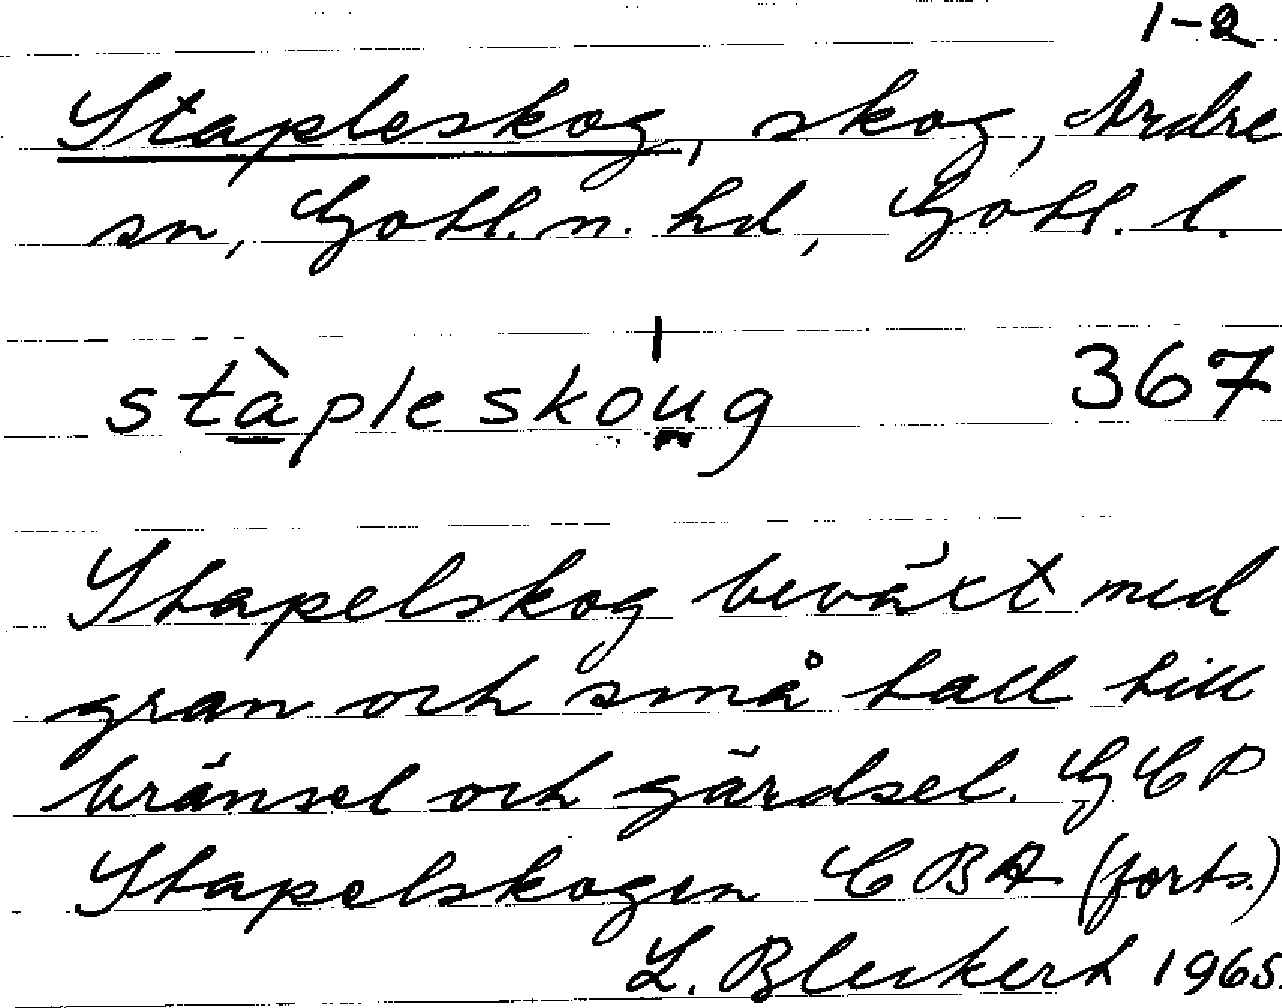 1-2
Stapleskog, skog, Ardre
sn, Gotl. n. hd, Gotl. l.
stàpleskoug 367
Stapelskog beväxt med
gran och små tall till
bränsel och gärdsel. GCP
Stapelskogen CBA (forts.)
L. Bleckert 1965.